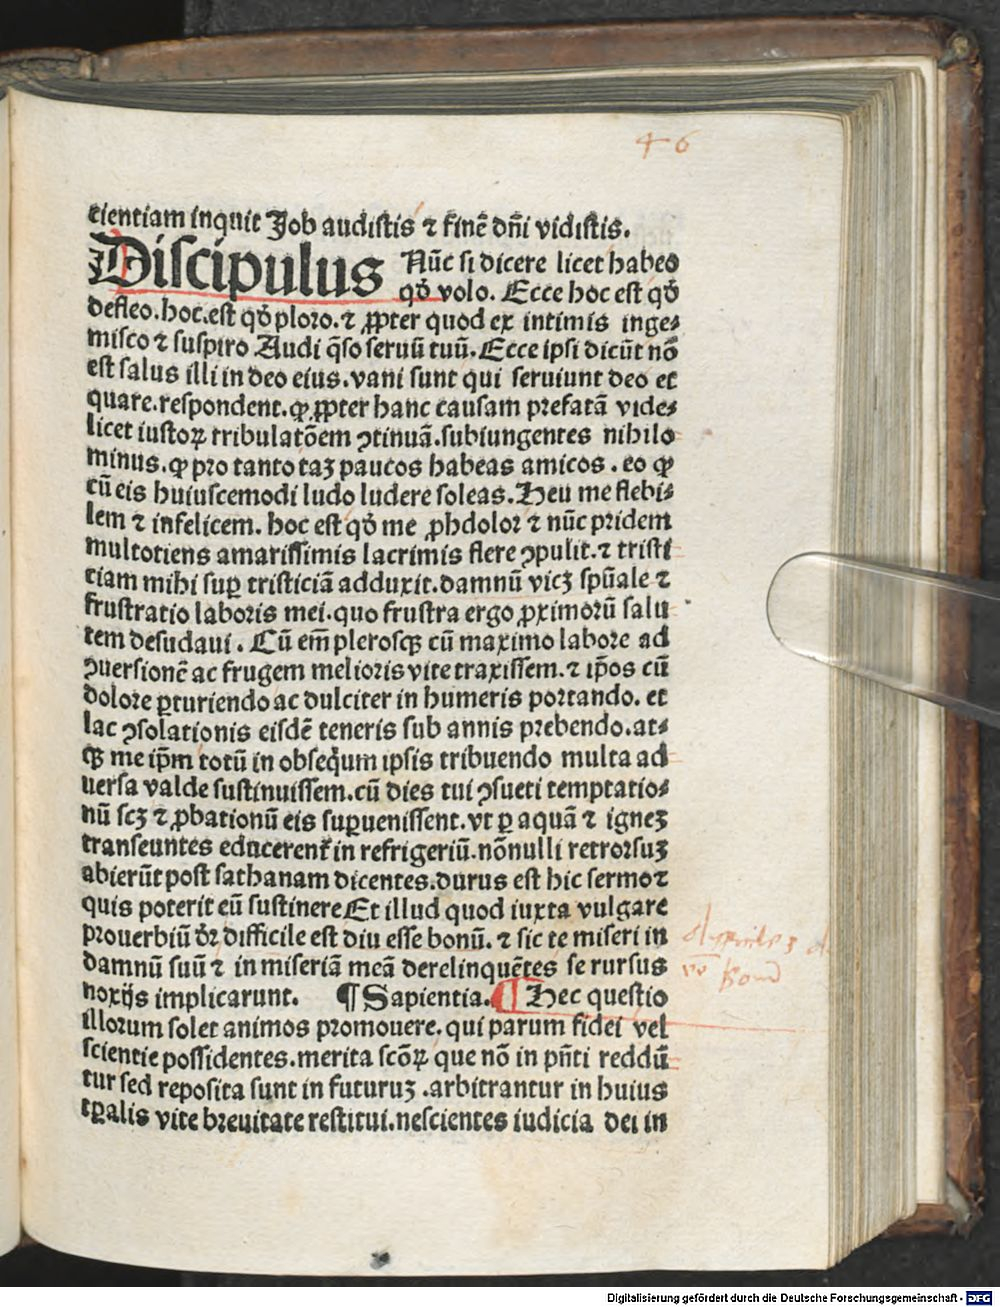 46
cientiam inquit Job audistis ⁊ finē dñi vidistis.
Discipulus Nūc si dicere licet habeo
qđ volo. Ecce hoc est qđ
defleo. hoc. est qđ ploro. ⁊ ꝓpter quod ex intimis inge⸗
misco ⁊ suspiro Audi q̄so seruū tuū. Ecce ipsi dicūt nō
est salus illi in deo eius. vani sunt qui seruiunt deo et
quare. respondent. ꝙ ꝓpter hanc causam prefatā vide⸗
licet iustoꝝ tribulatōem ꝯtinuā. subiungentes nihilo
minus. ꝙ pro tanto taꝫ paucos habeas amicos. eo ꝙ
cū eis huiuscemodi ludo ludere soleas. Heu me flebi⸗
lem ⁊ infelicem. hoc est qđ me ꝓhdolor ⁊ nūc pridem
multotiens amarissimis lacrimis flere ꝯpulit. ⁊ tristi
ciam mihi suꝑ tristiciā adduxit. damnū vicꝫ spūale ⁊
frustratio laboris mei. quo frustra ergo ꝓximorū salu
tem desudaui. Cū em̄ plerosqꝫ cū maximo labore ad
ꝯuersionē ac frugem melioris vite traxissem. ⁊ ip̄os cū
dolore ꝑturiendo ac dulciter in humeris portando. et
lac ꝯsolationis eisdē teneris sub annis prebendo. at⸗
qꝫ me ip̄m totū in obseq̄um ipsis tribuendo multa ad
uersa valde sustinuissem. cū dies tui ꝯsueti temptatio⸗
nū scꝫ ⁊ ꝓbationū eis suꝑuenissent. vt ꝑ aquā ⁊ igneꝫ
transeuntes educerent᷑ in refrigeriū. nōnulli retrorsuꝫ
abierūt post sathanam dicentes. durus est hic sermo ⁊
quis poterit eū sustinere Et illud quod iuxta vulgare
prouerbiū dr̄ difficile est diu esse bonū. ⁊ sic te miseri in
damnū suū ⁊ in miseriā meā derelinquētes se rursus
noxijs implicarunt. ¶ Sapientia. ¶ Hec questio
illorum solet animos promouere. qui parum fidei vel
scientie possidentes. merita scōꝝ que nō in pn̄ti reddū
tur sed reposita sunt in futuruꝫ. arbitrantur in huius
tꝑalis vite breuitate restitui. nescientes iudicia dei in
Digitalisierung gefördert durch die Deutsche Forschungsgemeinschaft - DFG